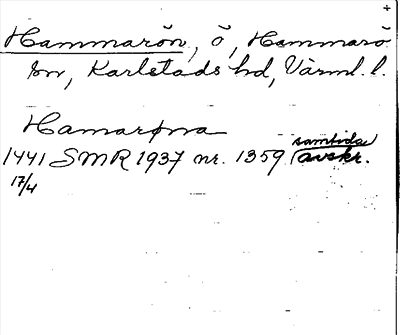 Hammarön, ö, Hammarö
sn, Karlstads hd, Värml. l.
Hamarøna
1441 SMR 1937 nr. 1359 (samtida avskr.
17/4